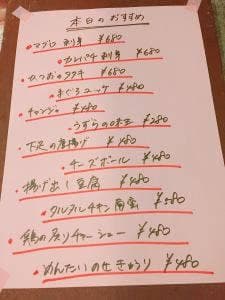 本日のおすすめ
・マグロ刺身 ¥680
・カンパチ刺身 ¥680
・かつおのタタキ ¥680
・まぐろユッケ ¥480
・チャンジャ ¥480
・うずらの味玉 ¥280
・下足の唐揚げ ¥480
・チーズボール ¥480
・揚げ出し豆腐 ¥480
・タルタルチキン南蛮 ¥580
・鶏の炙りチャーシュー ¥480
・めんたいのせきゅうり ¥480